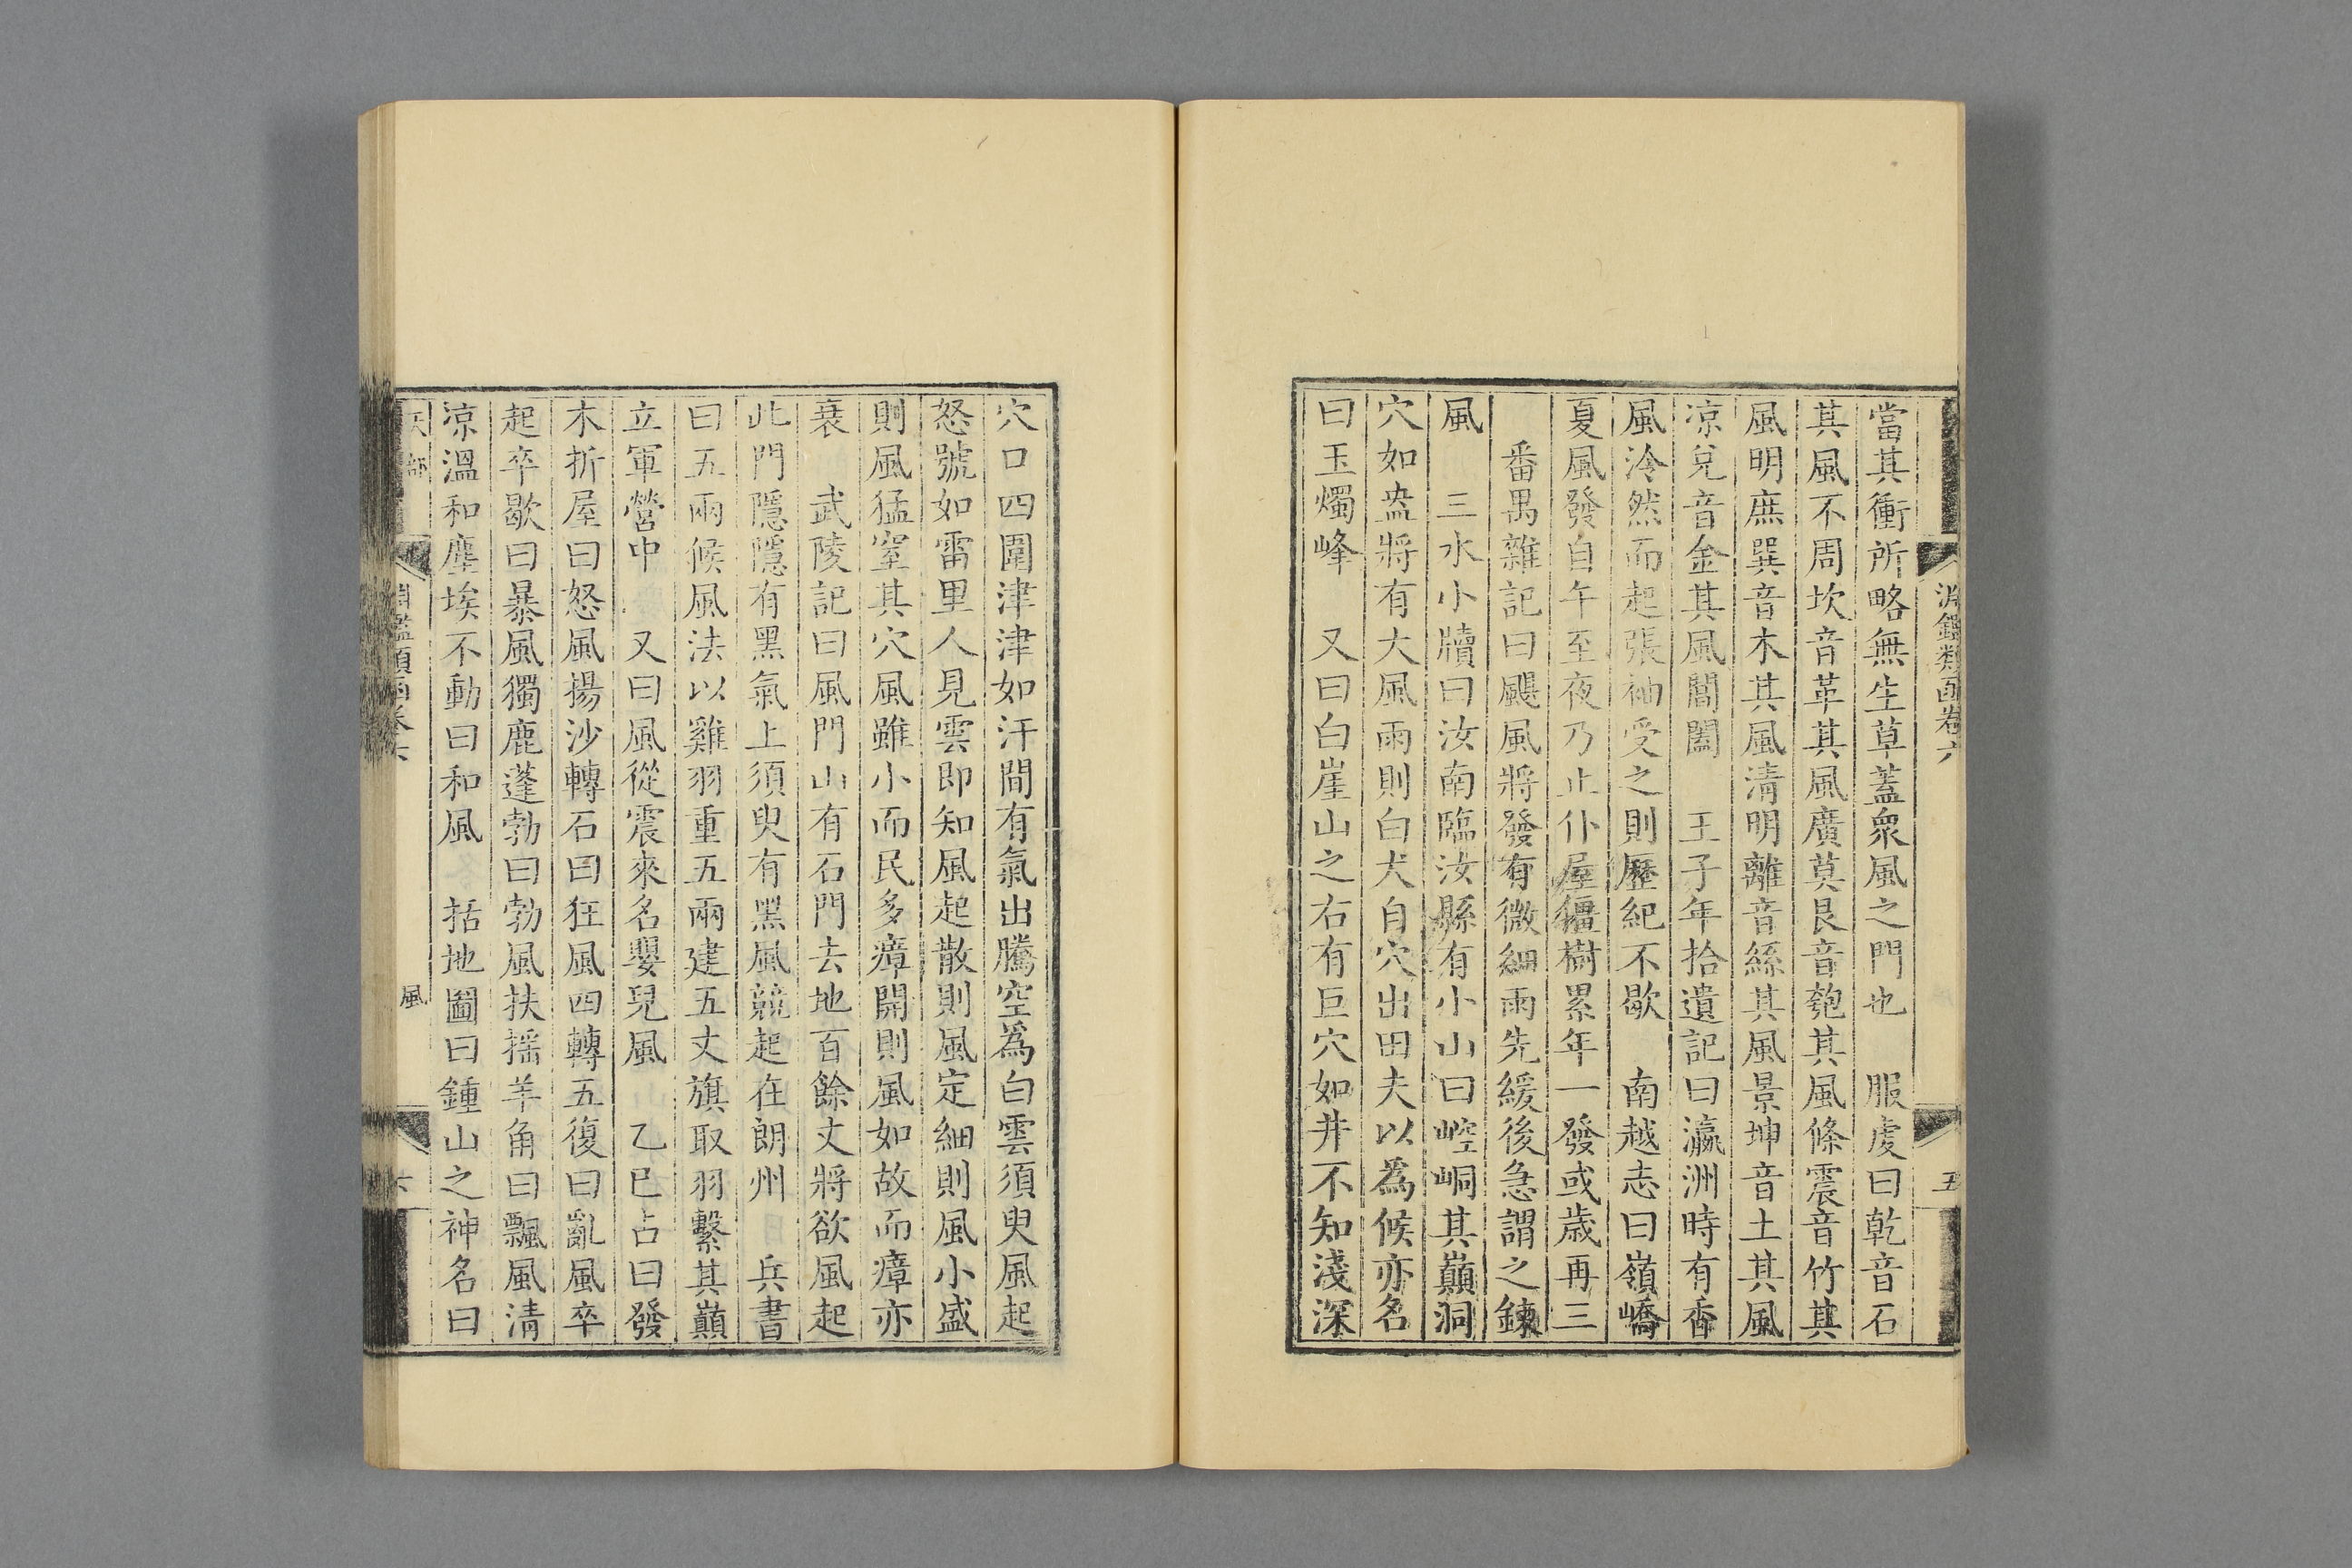 淵鑑類函卷六
五
當其衝所略無生草蓋衆風之門也　服虔曰乾音石
其風不周坎音革其風廣莫艮音匏其風條震音竹其
風明庶巽音木其風淸明離音絲其風景坤音土其風
凉兌音金其風閶闔　王子年拾遺記曰瀛洲時有香
風泠然而起張袖受之則歷紀不歇　南越志曰嶺嶠
夏風發自午至夜乃止仆屋僵樹累年一發或歲再三
番禺雜記曰颶風將發有微細雨先緩後急謂之鍊
風　三水小牘曰汝南臨汝縣有小山曰崆峒其巔洞
穴如盎將有大風雨則白犬自穴出田夫以爲候亦名
曰玉燭峰　又曰白崖山之右有巨穴如井不知淺深
穴口四圍津津如汗間有氣出騰空爲白雲須臾風起
怒號如雷里人見雲即知風起散則風定細則風小盛
則風猛窒其穴風雖小而民多瘴開則風如故而瘴亦
衰　武陵記曰風門山有石門去地百餘丈將欲風起
此門隱隱有黑氣上須臾有黑風競起在朗州　兵書
曰五兩候風法以雞羽重五兩建五丈旗取羽繫其巔
立軍營中　又曰風從震來名嬰兒風　乙巳占曰發
木折屋曰怒風揚沙轉石曰狂風四轉五復曰亂風卒
起卒歇曰暴風獨鹿蓬勃曰勃風扶搖羊角曰飄風淸
凉溫和塵埃不動曰和風　括地圖曰鍾山之神名曰
天部
淵鑑類函卷六
風
六